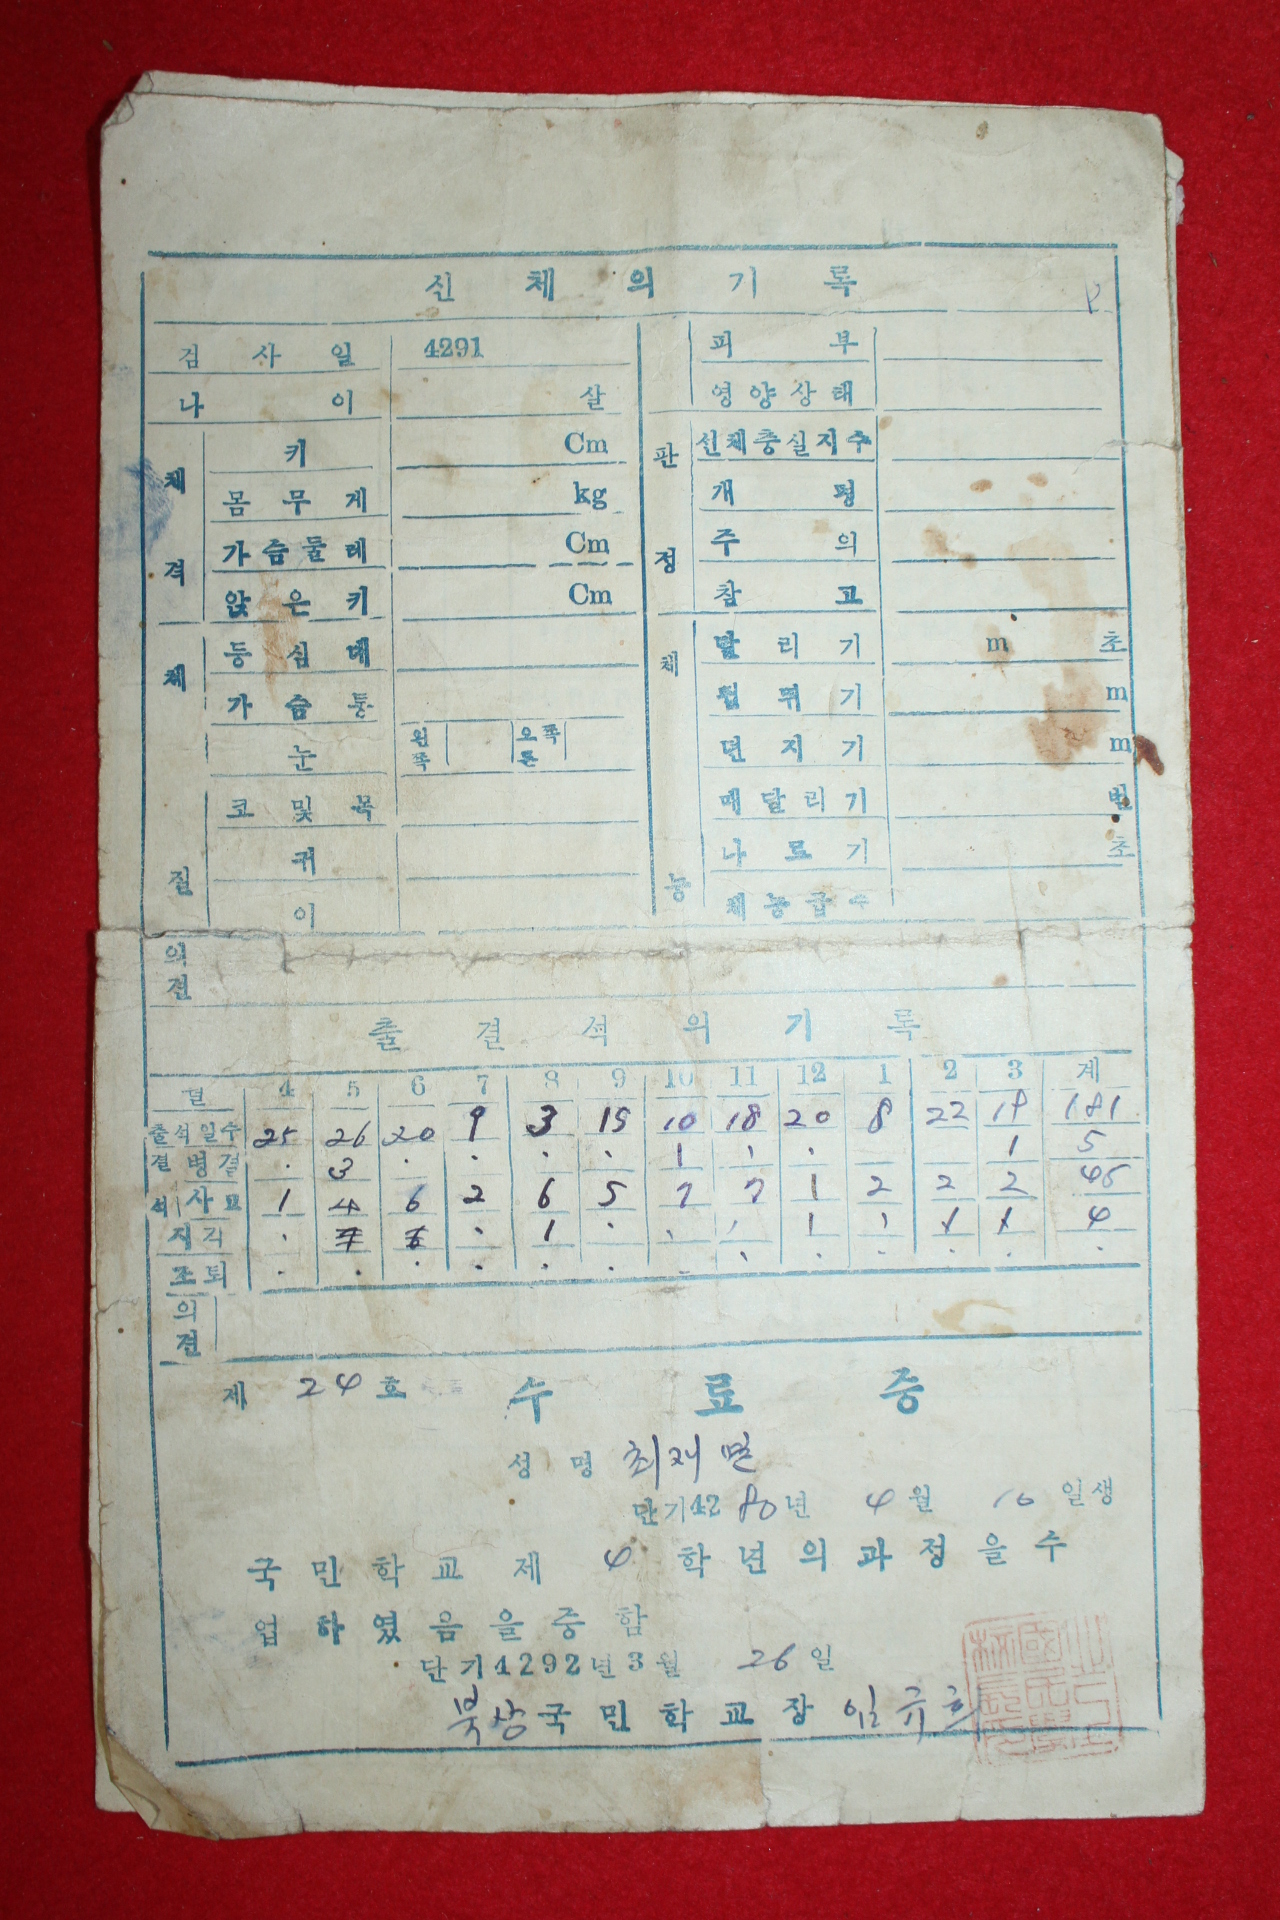 신체의기록
검사일 4291 피부
나이 살 영양상태
체격 키 Cm 판정 신체충실지수
몸무게 kg 개평
가슴둘레 Cm 주의
앉은키 Cm 참고
체질 등심대 체능 달리기 m 초
가슴통 뜀뛰기 m
눈 왼쪽 오른쪽 던지기 m
코및목 매달리기 번
귀 나르기 초
이 체능급수
의견
출결석의기록
월 4 5 6 7 8 9 10 11 12 1 2 3 계
출석일수 25 26 20 9 3 19 10 18 20 8 22 19 181
결석 병결 . 3 . . . . 1 1 5
사고 1 4 6 2 6 5 7 7 1 2 2 2 45
지각 1 1 4
조퇴
의견
제 24 호 수료증
성명 최재면
단기42 80년 4월 10일생
국민학교 제 4 학년의과정을수
업하였음을증함
단기4292년3월 26일
북상국민학교장 임규희